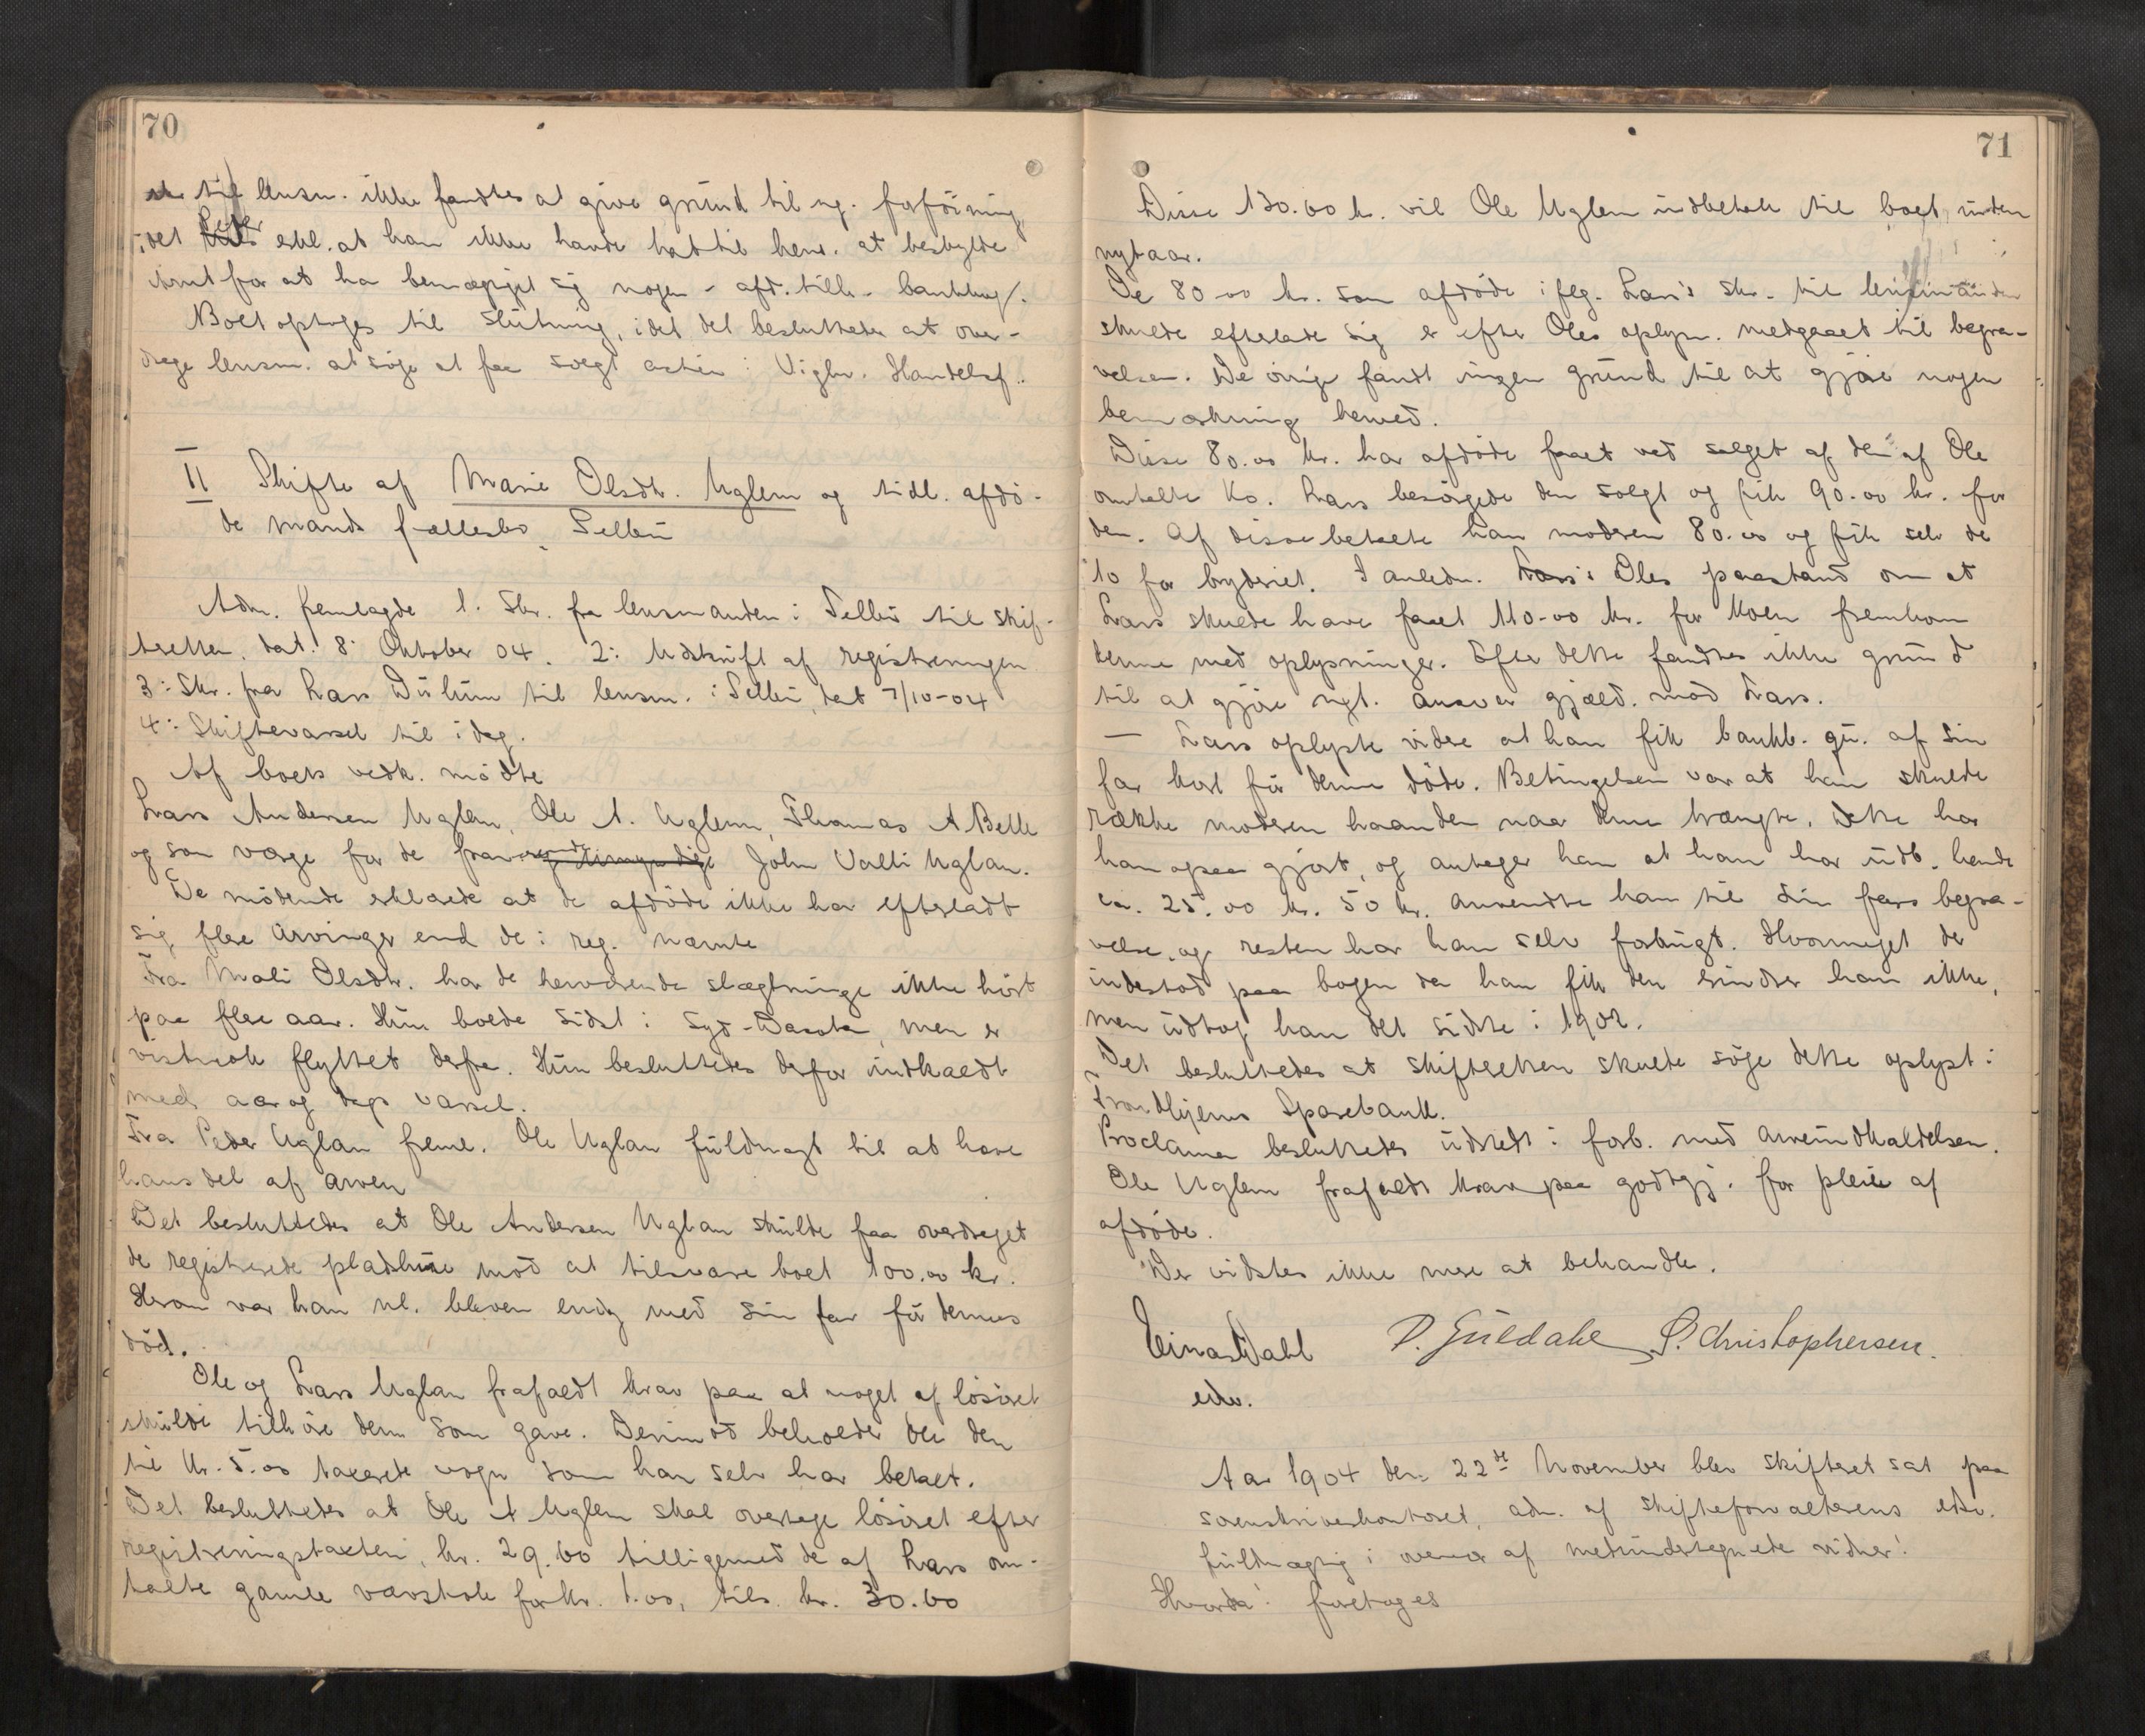 70
til lensm. ikke fandtes at give grund til ng. forføining,
idet Peder erkl. at han ikke havde hat til hens. at beskylde
for at ha bemægtiget sig nogen afd. tilh. bankbog.
Boet optoges til slutning, idet det besluttedes at over-
drage lensm. at søge at faa solgt actien i Vigln. Handelsf..
II Skifte af Marie Olsdtr. Uglem og tidl. afdø-
de mands fællesbo, Selbu
Adm. fremlagde 1. Skr. fra lensmanden i Selbu til skif-
teretten, dat. 8: Oktober 04. 2: Udskrift af registreringen
3: Skr. fra Lars Duhun til lensm. i Selbu, dat 7/10-04
4: Skiftevarsel til idag.
Af boets vedk. mødte
Lars Andersen Uglem, Ole A. Uglem, Thomas A Bell
og som værge for de fraværende John Valli Uglan.
De mødende erklærede at de afdøde ikke har efterladt
sig flere arvinger end de i reg. nævnte
Fra Mali Olsdtr. har de herværende slægtninge ikke hørt
paa flere aar. Hun boede sidst i Syd-Dacota, men er
vistnok flyttet derfra. Hun besluttedes derfor indkaldt
med aar og dags varsel.
Fra Peder Uglan freml. Ole Uglan fuldmagt til at hæve
hans del af arven
Det besluttedes at Ole Andersen Uglan skulde faa overdraget
de registrerede pladshuse mod at tilsvare boet 100.00 kr.
Herom var han nl. bleven enig med sin far før dennes
død.
Ole og Lars Uglan frafaldt krav paa at noget af løsøret
skulde tilhøre dem som gave. Derimod beholder Ole den
til kr. 5.00 taxerede vogn som han selv har betalt.
Det besluttedes at Ole A Uglem skal overtage løsøret efter
registreringstaxten, kr. 29.60 tilligemed de af Lars om-
talte gamle vævstole for kr. 1.00, tils. kr. 30.60
71
Disse 130.60 kr. vil Ole Uglem indbetale til boet inden
nytaar.
De 80.00 kr. som afdøde iflg. Lars's skr. til lensmanden
skulde efterlade sig er efter Oles oplysn. medgaaet til begra-
velsen. De øvrige fandt ingen grund til at gjøre nogen
bemærkning herved.
Disse 80.00 kr. har afdøde faaet ved salget af den af Ole
omtalte ko. Lars besørgede den solgt og fik 90.00 kr. for
den. Af disse betalte han moderen 80.00 og fik selv de
10 for bryderiet. I anledn. Lars's Oles paastand om at
Lars skulde have faaet 110.00 kr. for koen fremkom
denne med oplysninger. Efter dette fandtes ikke grund
til at gjøre ngt. ansvar gjæld. mod Lars.
— Lars oplyste videre at han fik bankb. gu. af sin
far kort før denne døde. Betingelsen var at han skulde
række moderen haanden naar denne trængte. Dette har
han ogsaa gjort, og antager han at han har udb. hende
ca. 25.00 kr. 50 kr. anvendte han til sin fars begra-
velse, og resten har han selv forbrugt. Hvormeget der
indestod paa bogen da han fik den erindrer han ikke,
men udtog han det sidste i 1902.
Det besluttedes at skifteretten skulde søge dette oplyst i
Trondhjems Sparebank.
Proclama besluttedes udstedt i forb. med arveindkaldelsen.
Ole Uglem frafaldt krav paa godtgj. for pleie af
afdøde.
Der vidstes ikke mere at behandle.
Einar Dahl P. Guldahl P. Christophersen.
edv.
Aar 1904 den 22de November blev skifteret sat paa
sorenskriverkontoret, adm. af skifteforvalterens edsv.
fuldmægtig i overvær af medundertegnede vidner:
Hvorda: foretoges